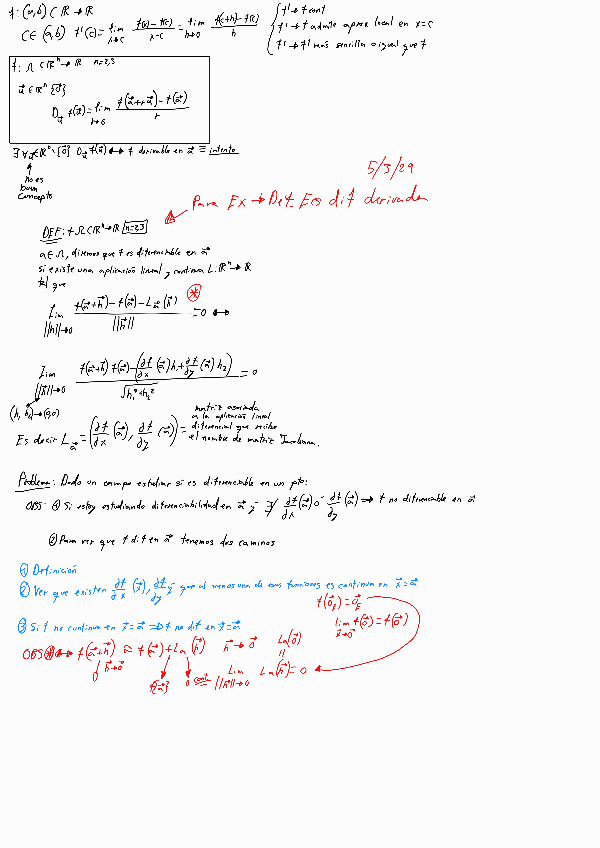 f: (a,b) ⊂ ℝ → ℝ
c ∈ (a,b) f'(c) = lim x→c (f(x) - f(c))/(x-c) = lim h→0 (f(c+h) - f(c))/h
f' → f cont
f' → f admite aprox local en x=c
f' → f' más sencilla o igual que f
f: Ω ⊂ ℝⁿ → ℝ n=2,3
u⃗ ∈ ℝⁿ \ {0⃗}
D_u⃗ f(a⃗) = lim r→0 (f(a⃗+ru⃗) - f(a⃗))/r
∃ ∀ u⃗ ∈ ℝⁿ \ {0⃗} D_u⃗ f(a⃗) ↔ f derivable en a⃗ ≡ intento
No es
buen
concepto
5/3/29
Para Ex → Det. Ecs dif derivadas
DEF: f Ω ⊂ ℝⁿ → ℝ n=2,3
a ∈ Ω, diremos que f es diferenciable en a⃗
si existe una aplicación lineal y continua L: ℝⁿ → ℝ
tal que
Lim ||h||→0 (f(a⃗+h⃗) - f(a⃗) - L_a⃗(h⃗))/||h⃗|| = 0 ↔ *
Lim ||h⃗||→0 (f(a⃗+h⃗) f(a⃗) - (∂f/∂x (a⃗) h₁ + ∂f/∂y (a⃗) h₂))/√(h₁²+h₂²) = 0
(h₁, h₂) → (0,0)
Es decir L_a⃗ = (∂f/∂x (a⃗), ∂f/∂y (a⃗)) = matriz asociada
a la aplicación lineal
diferencial que recibe
el nombre de matriz Jacobiana.
Problema: Dado un campo estudiar si es diferenciable en un pto:
OBS: ① Si estoy estudiando diferenciabilidad en a⃗ y ∄ ∂f/∂x (a⃗) o ∂f/∂y (a⃗) ⇒ f no diferenciable en a⃗
② Para ver que f dif en a⃗ tenemos dos caminos
① Definición
② Ver que existen ∂f/∂x (x⃗), ∂f/∂y y que al menos una de esas funciones es continua en x⃗ = a⃗
③ Si f no continua en x⃗ = a⃗ ⇒ f no dif en x⃗ = a⃗
f(0⃗_E) = 0⃗_F
lim x⃗→0 f(0⃗) = f(0⃗)
OBS * ↔ f(a⃗+h⃗) ≈ f(a⃗) + La(h⃗) h⃗ → 0⃗ La(0⃗)
h⃗→0⃗ f(a⃗) 0 cont = Lim ||h⃗||→0 La(h⃗) = 0